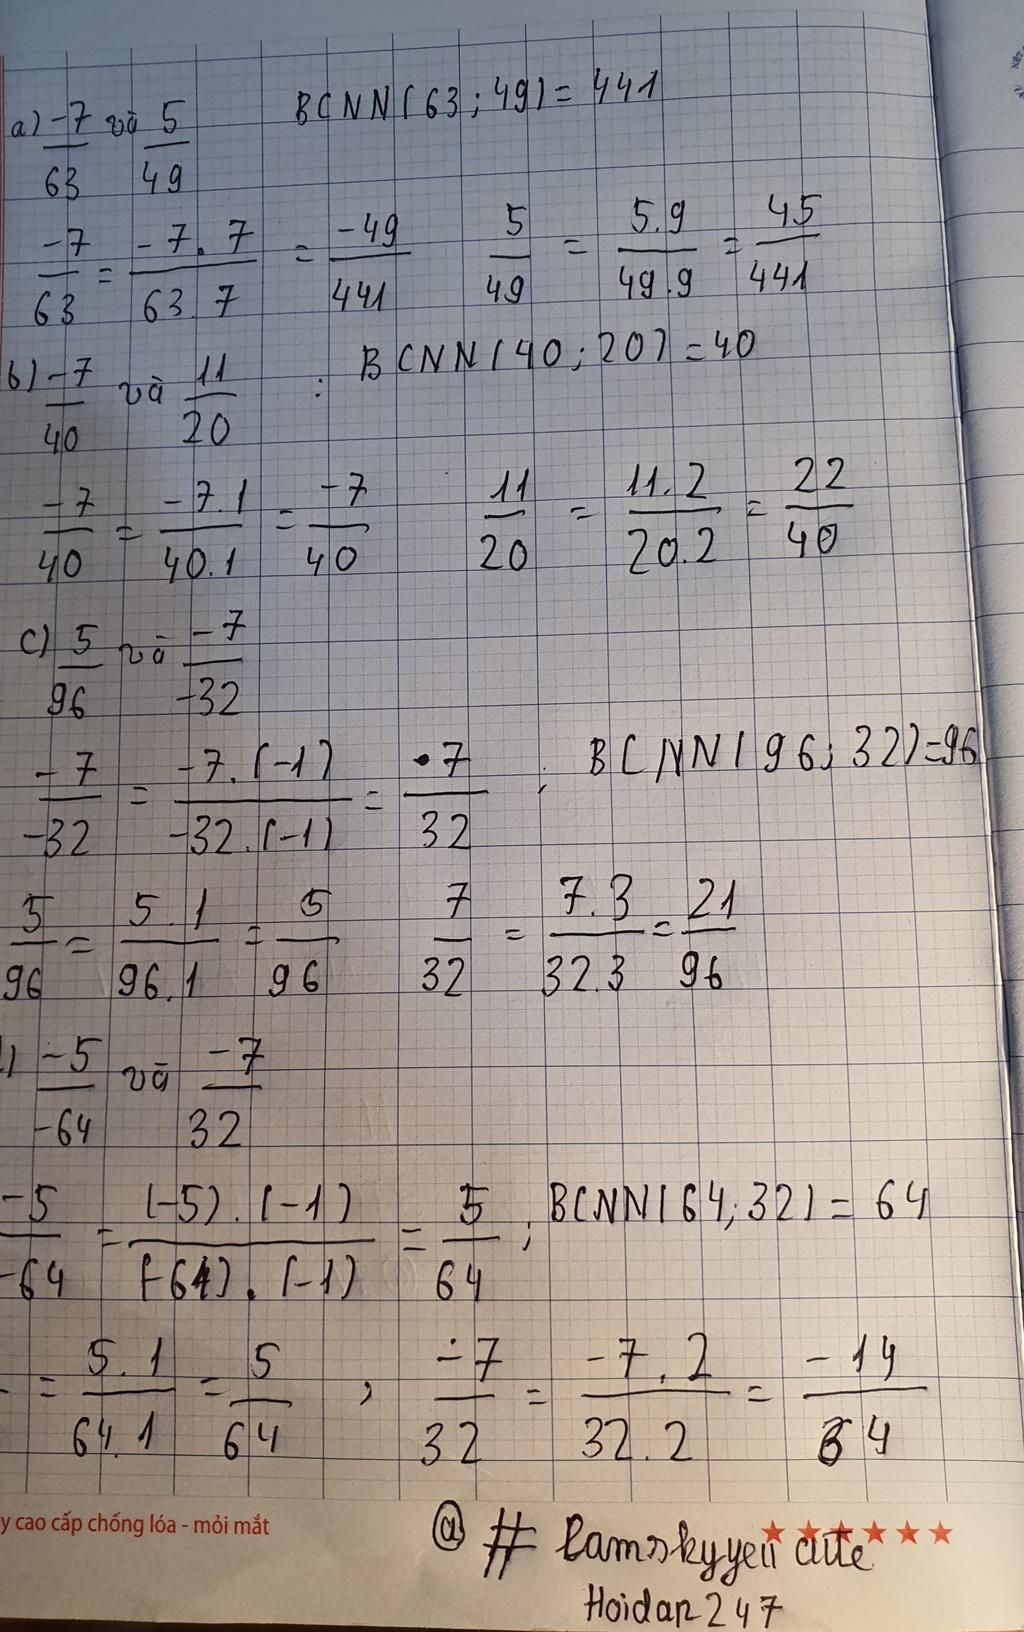 a) -7/63 và 5/49 BCNN(63;49)=441
-7/63 = -7.7/63.7 = -49/441 5/49 = 5.9/49.9 = 45/441
b) -7/40 và 11/20 : BCNN(40;20)=40
-7/40 = -7.1/40.1 = -7/40 11/20 = 11.2/20.2 = 22/40
c) 5/96 và -7/-32
-7/-32 = -7.(-1)/-32.(-1) = 7/32 ; BCNN(96;32)=96
5/96 = 5.1/96.1 = 5/96 7/32 = 7.3/32.3 = 21/96
) -5/-64 và -7/32
-5/-64 = (-5).(-1)/(-64).(-1) = 5/64 ; BCNN(64;32)=64
= 5.1/64.1 = 5/64 ; -7/32 = -7.2/32.2 = -14/64
y cao cấp chống lóa - mỏi mắt
@ # lamskyyeu cute
Hoidap247